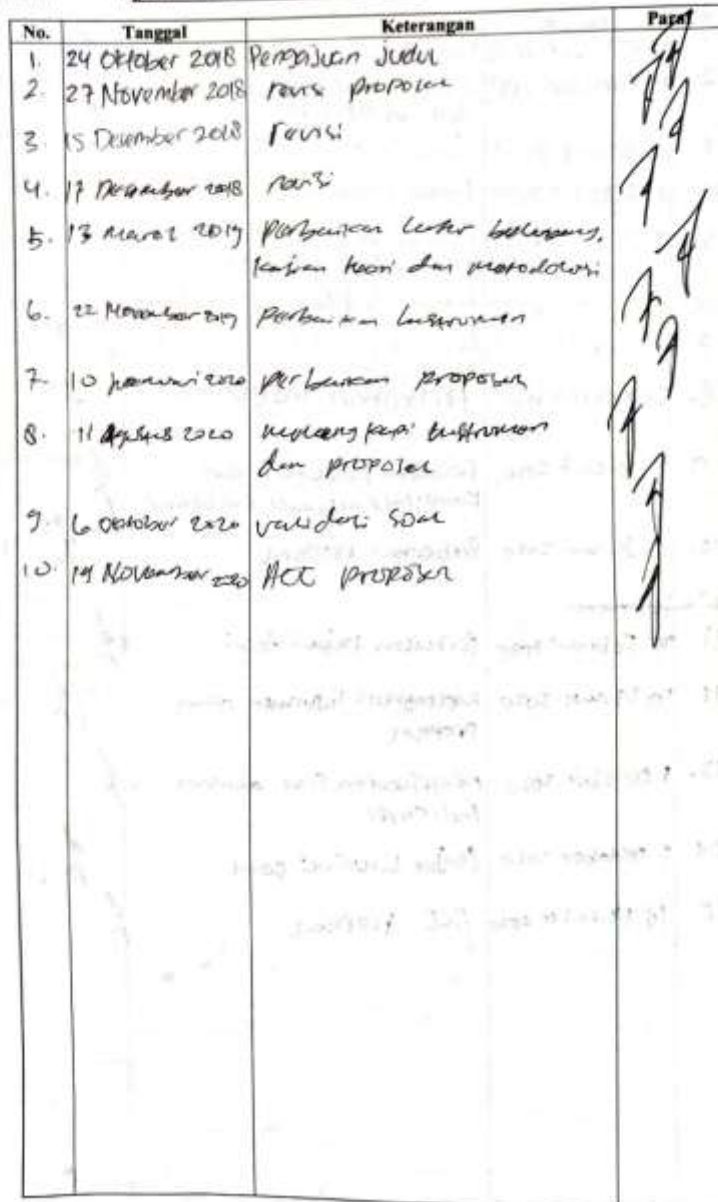 No. Tanggal Keterangan Paraf
1. 24 Oktober 2018 Pengajuan judul
2. 27 November 2018 revisi proposal
3. 15 Desember 2018 revisi
4. 17 Desember 2018 revisi
5. 13 maret 2019 perbaikan latar belakang,
kajian teori dan metodologi
6. 22 November 2019 perbaikan instrumen
7. 10 januari 2020 perbaikan proposal
8. 11 Agustus 2020 melengkapi instrumen
dan proposal
9. 6 oktober 2020 validasi soal
10. 19 November 2020 ACC proposal